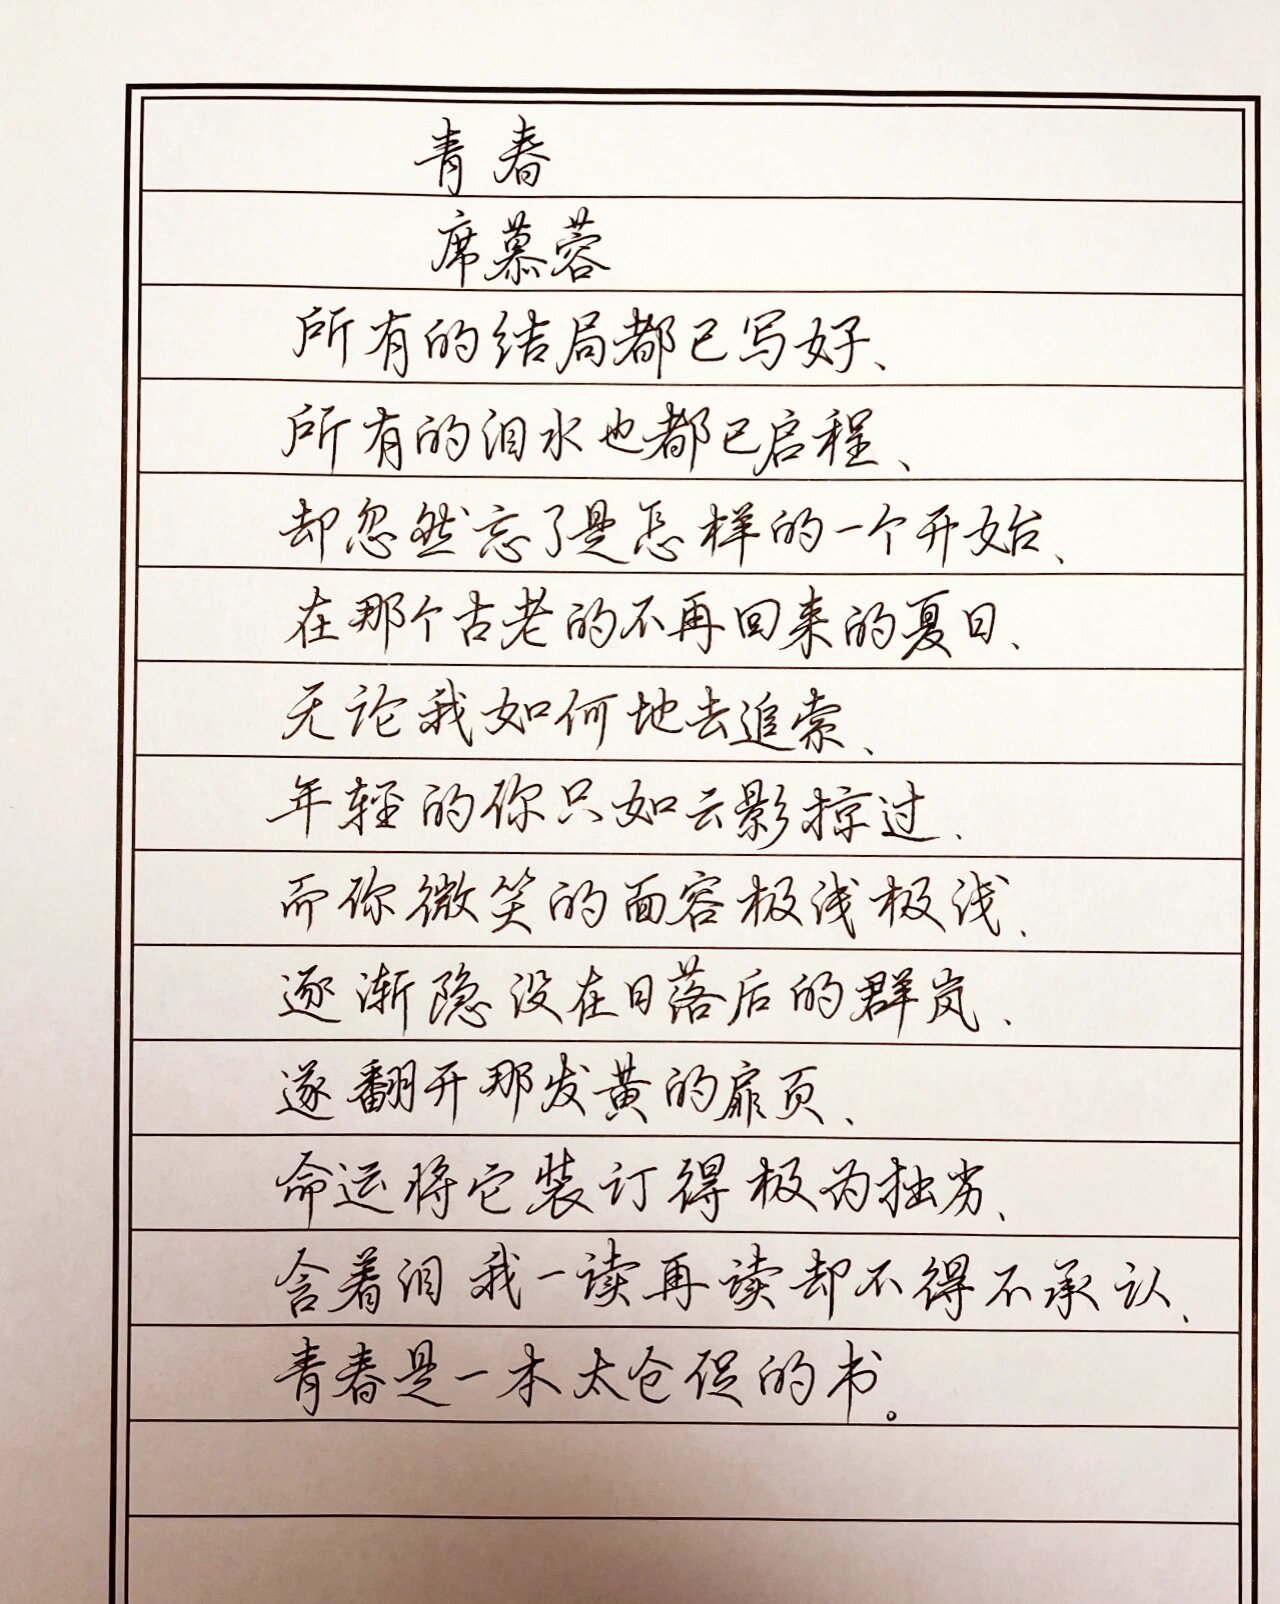 青春
席慕蓉
所有的结局都已写好、
所有的泪水也都已启程、
却忽然忘了是怎样的一个开始、
在那个古老的不再回来的夏日、
无论我如何地去追索、
年轻的你只如云影掠过、
而你微笑的面容极浅极浅、
逐渐隐没在日落后的群岚、
遂翻开那发黄的扉页、
命运将它装订得极为拙劣、
含着泪我一读再读却不得不承认、
青春是一本太仓促的书。